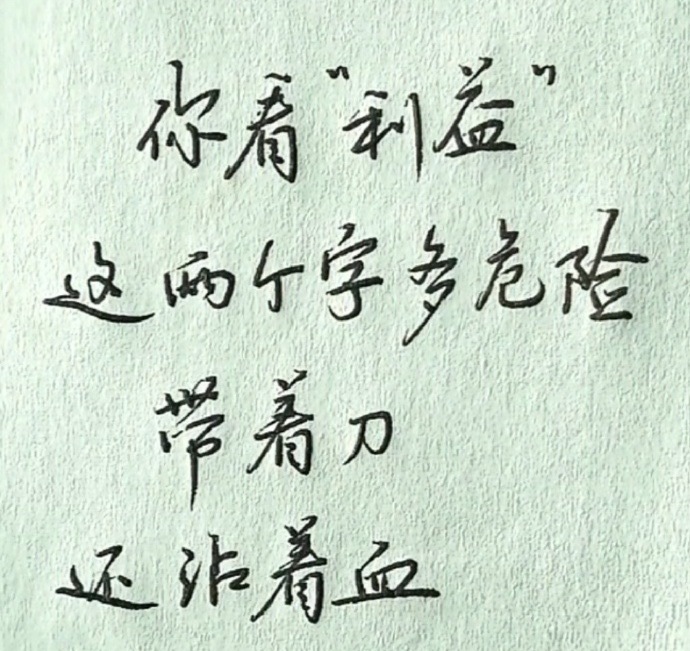 你看"利益"
这两个字多危险
带着刀
还沾着血